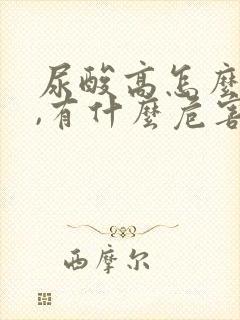 尿酸高怎麼
,有什麼危害
西摩尔